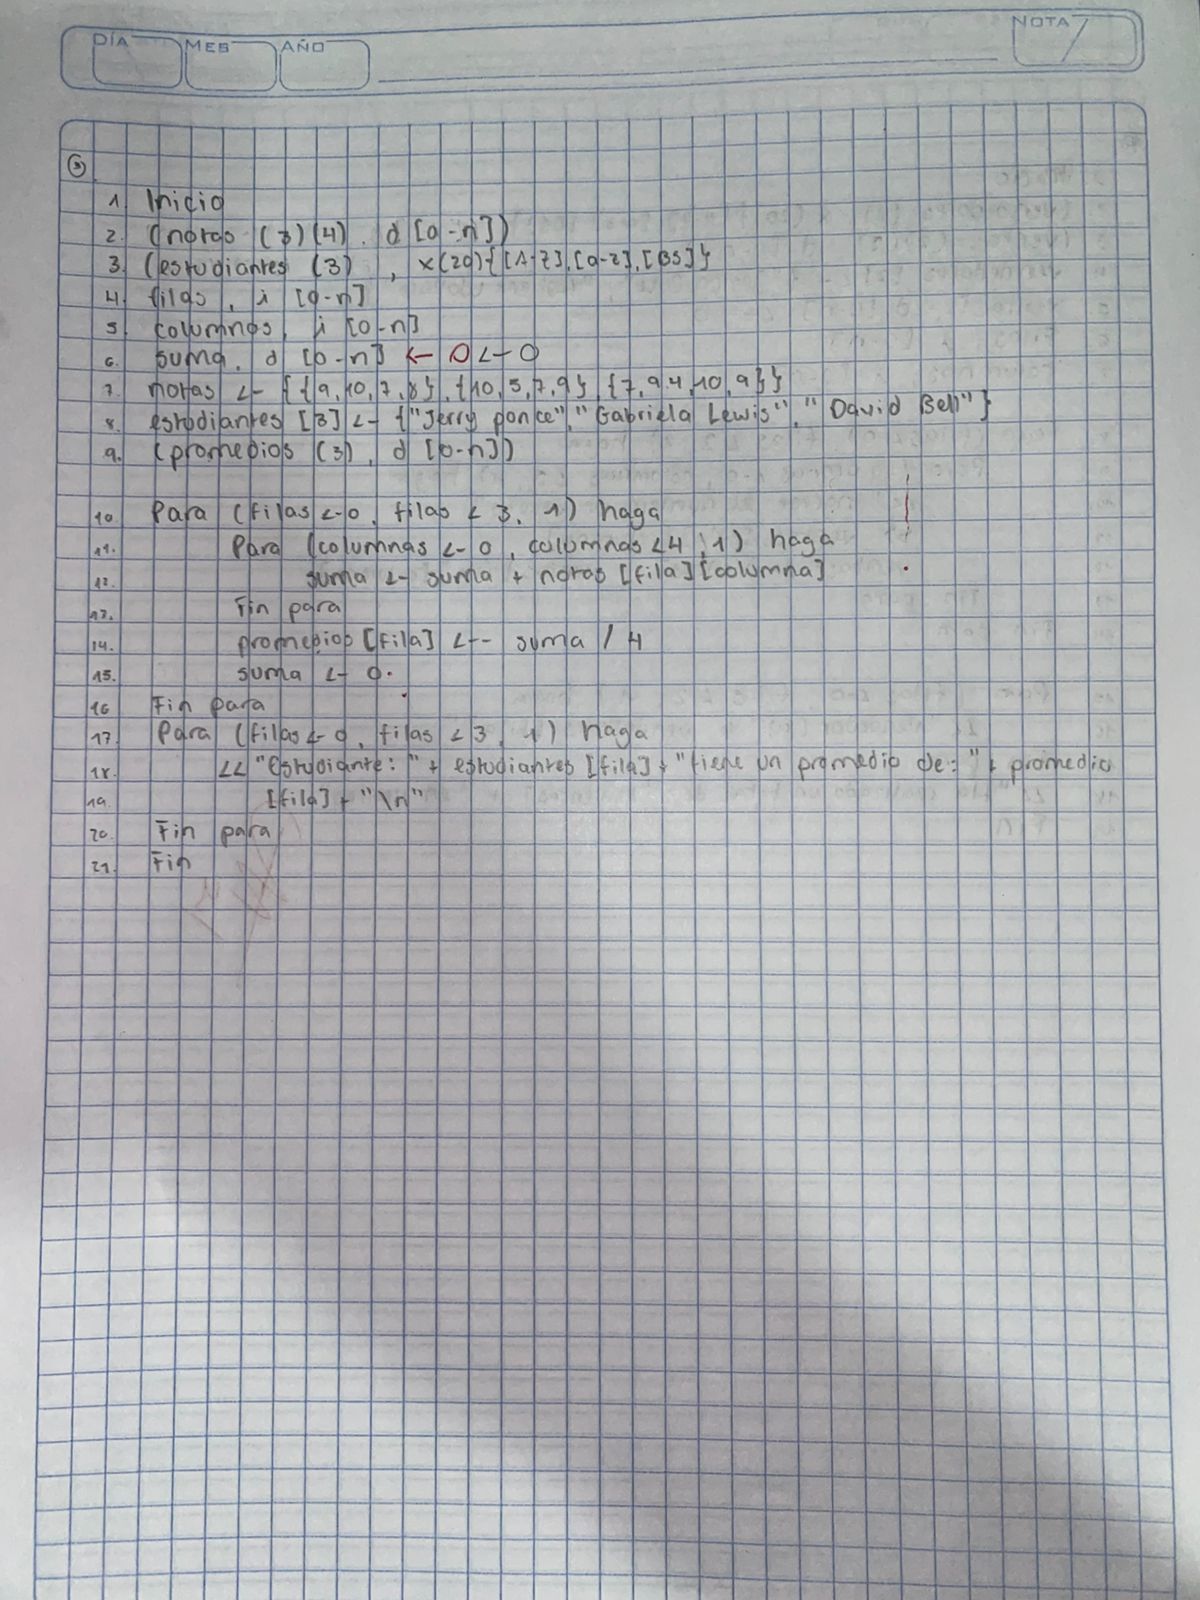 DÍA MES AÑO NOTA
3
1. Inicio
2. (notas (3)(4), d [0-n])
3. (estudiantes (3), x(20){[A-Z],[a-z],[BS]}
4. filas, i [0-n]
5. columnas, i [0-n]
6. suma, d [0-n] <- 0 <- 0
7. notas <- {{9,10,7,8},{10,5,7,9},{7,9.4,10,9}}
8. estudiantes [3] <- {"Jerry ponce", "Gabriela Lewis", "David Bell"}
9. (promedios (3), d [0-n])
10. Para (filas <- 0, filas < 3, 1) haga
11. Para (columnas <- 0, columnas < 4, 1) haga
12. suma <- suma + notas [fila][columna]
13. Fin para
14. promedios [fila] <-- suma / 4
15. suma <- 0.
16 Fin para
17 Para (filas <- 0, filas < 3, 1) haga
18. << "Estudiante: " + estudiantes [fila] + "tiene un promedio de: " + promedio
19. [fila] + "\n"
20. Fin para
21. Fin